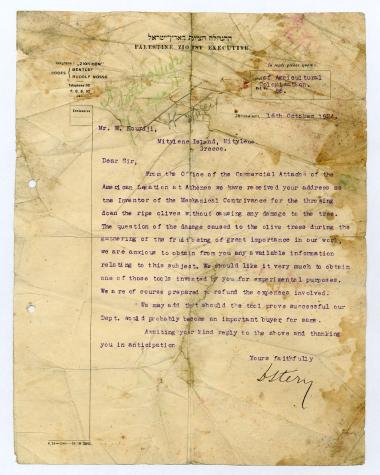 ההנהלה הציונית בארץ־ישראל
PALESTINE ZIONIST EXECUTIVE
"ZIONKOM"
CODES
BENTLEY
RUDOLF MOSSE
In reply please quote:
of Agricultural
Colonisation.
Jerusalem, 14th October
Mr. M. Kourdji,
Mitylene Island, Mitylene
Greece.
Dear Sir,
From the Office of the Commercial Attache of the
American Legation at Athens we have received your address as
the Inventor of the Mechanical Contrivance for the
down the ripe olives without causing any damage to the tree.
The question of the damage caused to the olive trees during the
gathering of the fruit being of great importance in our work,
we are anxious to obtain from you any available information
relating to this subject. We should like it very much to obtain
one of those tools invented by you for experimental purposes.
We are of course prepared to refund the expences involved.
We may add that should the tool prove successful our
Dept. would probably become an important buyer for same.
Awaiting your kind reply to the above and thanking
you in anticipation
Yours faithfully